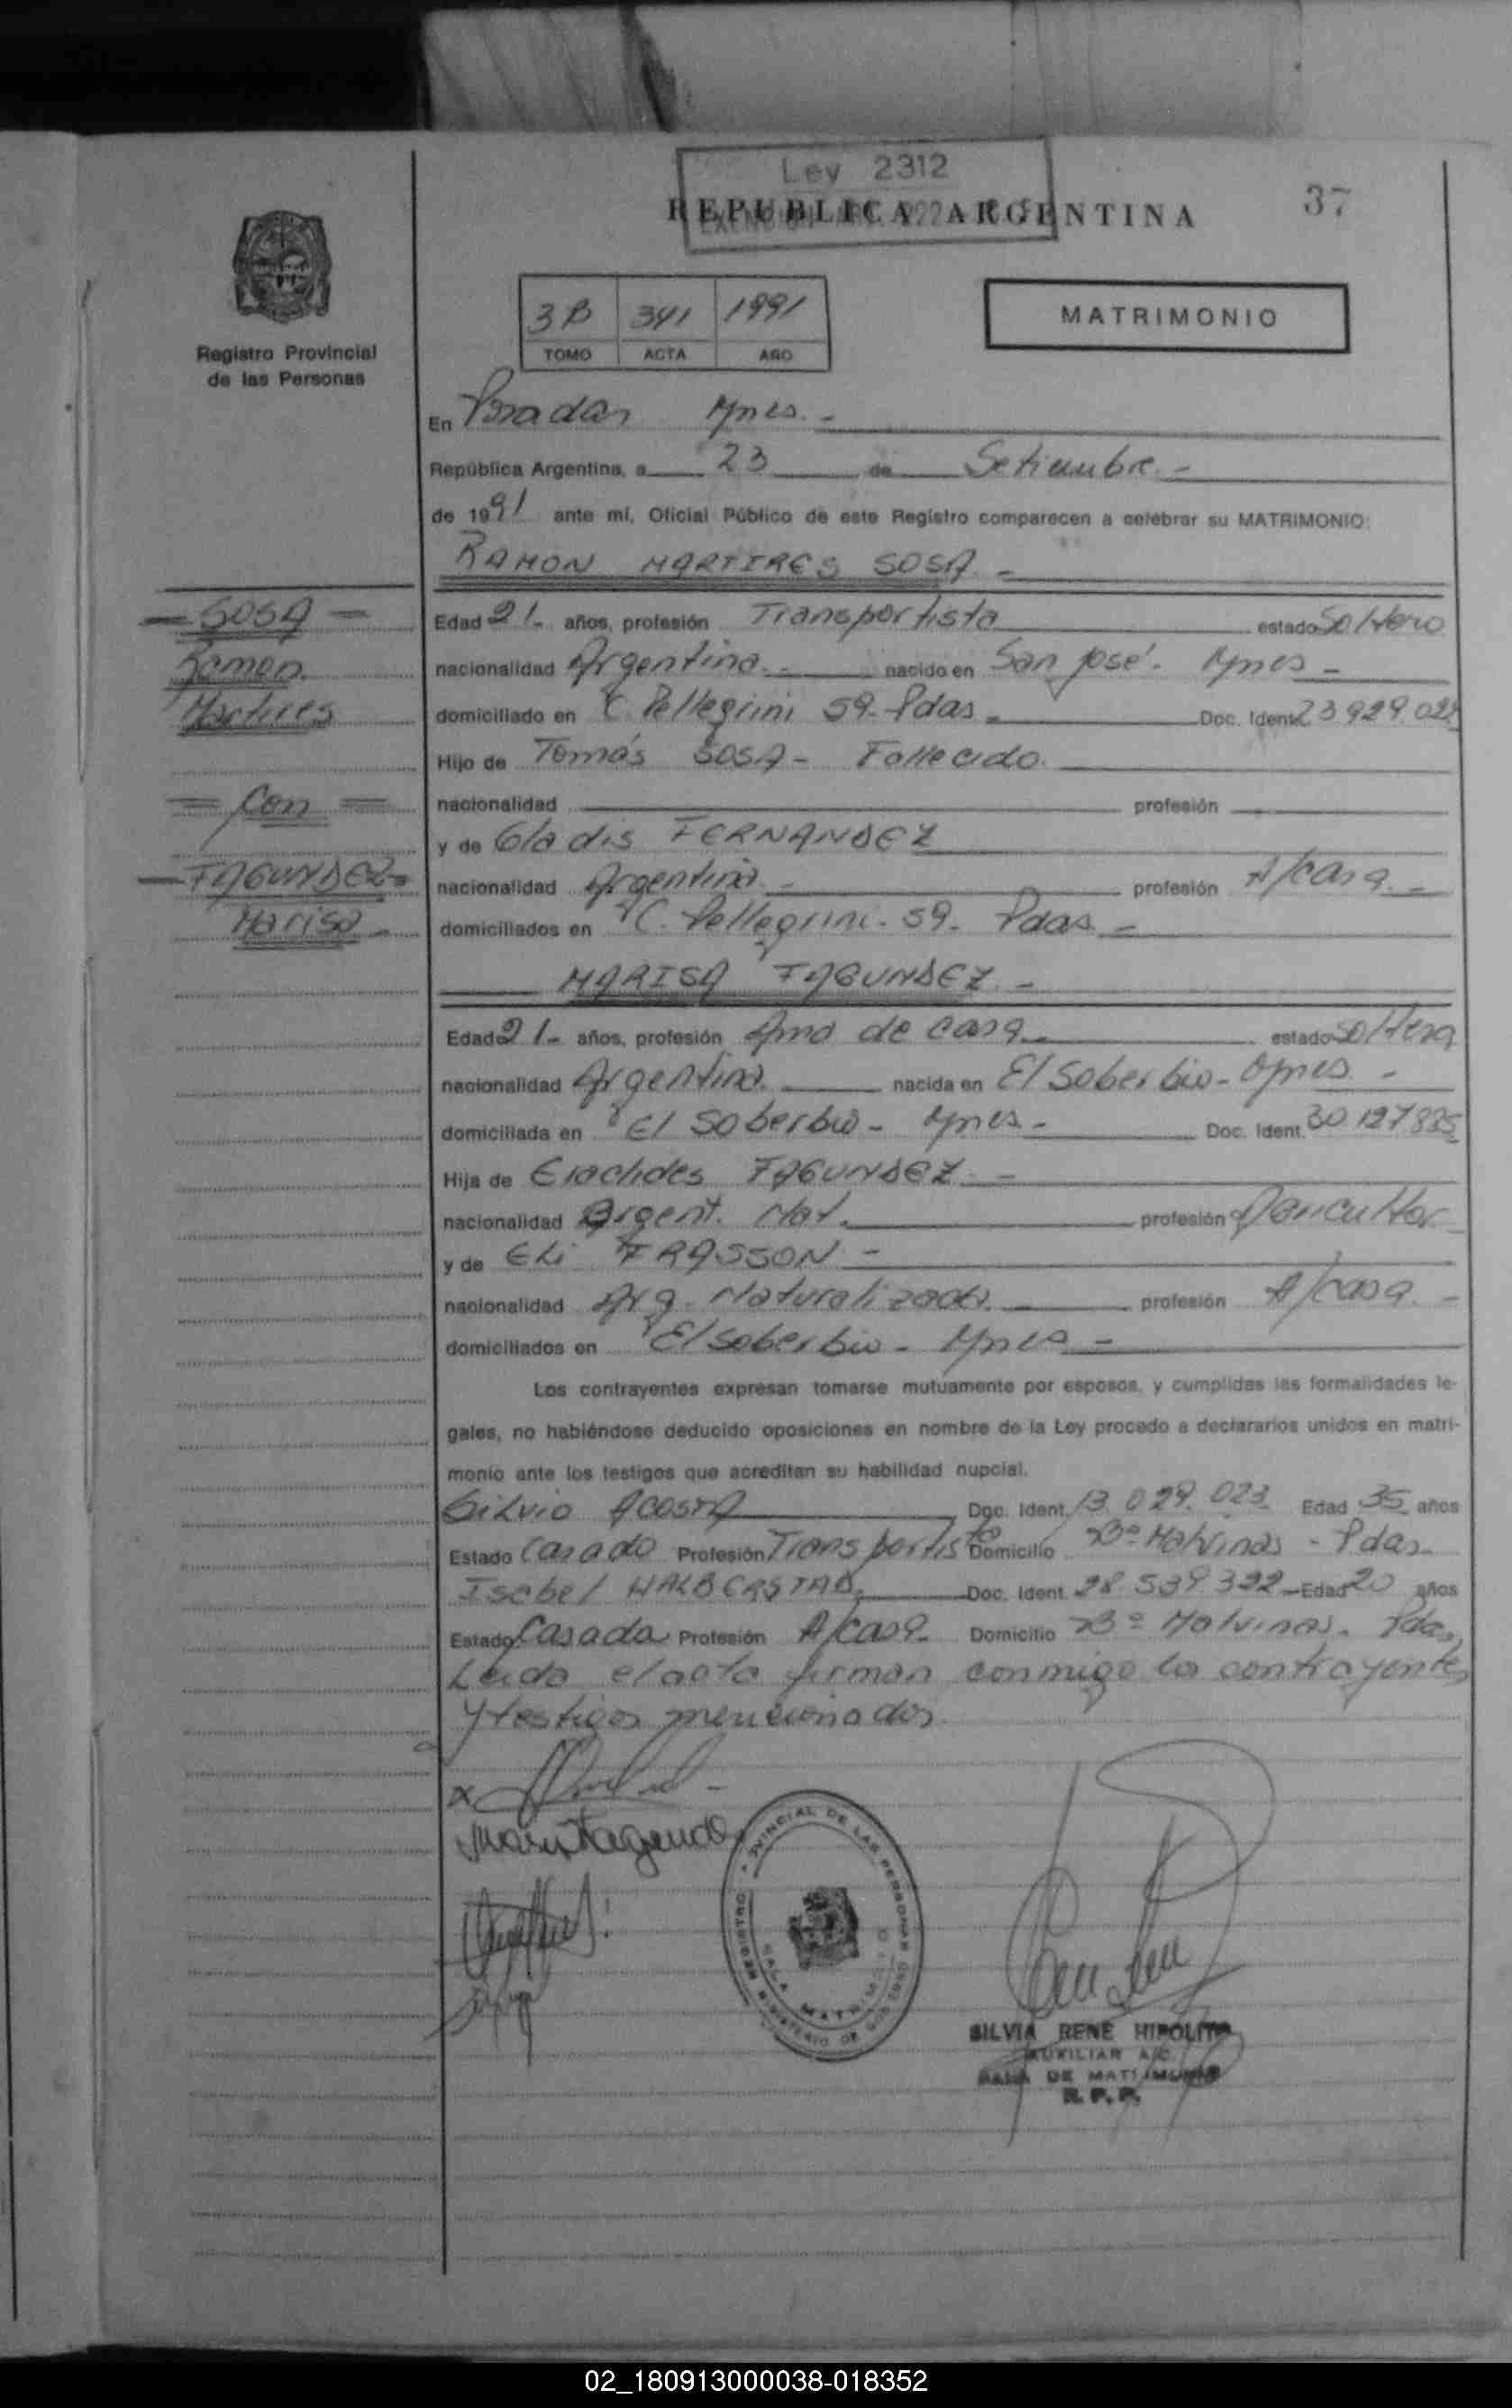 Ley 2312
REPUBLICA ARGENTINA
37
3B 341 1991
TOMO ACTA AÑO
MATRIMONIO
Registro Provincial
de las Personas
En Posadas Mnes. -
República Argentina, a 23 de Setiembre -
de 1991 ante mí, Oficial Público de este Registro comparecen a celebrar su MATRIMONIO:
RAMON MARTIRES SOSA -
- SOSA -
Ramon
Martires
= Con =
- FAGUNDEZ -
Marisa -
Edad 21- años, profesión Transportista estado Soltero
nacionalidad Argentina - nacido en San José - Mnes -
domiciliado en C. Pellegrini 59 - Pdas - Doc. Ident. 23.929.02
Hijo de Tomás SOSA - Fallecido.
nacionalidad profesión
y de Gladis FERNANDEZ
nacionalidad Argentina - profesión A/casa -
domiciliados en C. Pellegrini - 59 - Pdas. -
MARISA FAGUNDEZ -
Edad 21- años, profesión Ama de casa - estado Soltera
nacionalidad Argentina. nacida en El Soberbio - Mnes -
domiciliada en El Soberbio - Mnes - Doc. Ident. 30.127.885
Hija de Eraclides FAGUNDEZ -
nacionalidad Argent. Nat. profesión Agricultor
y de Eli FRASSON -
nacionalidad Arg. Naturalizada profesión A/casa -
domiciliados en El Soberbio - Mnes -
Los contrayentes expresan tomarse mutuamente por esposos, y cumplidas las formalidades le-
gales, no habiéndose deducido oposiciones en nombre de la Ley procedo a declararlos unidos en matri-
monio ante los testigos que acreditan su habilidad nupcial.
Silvio ACOSTA Doc. Ident. 13.029.023 Edad 35 años
Estado Casado Profesión Transportista Domicilio Bº Malvinas - Pdas.
Isabel HALBERSTAD Doc. Ident. 28.539.322 - Edad 20 años
Estado Casada Profesión A/casa. Domicilio Bº Malvinas. Pdas,
Leida el acta firman conmigo los contrayentes
y testigos mencionados
x
REGISTRO PROVINCIAL DE LAS PERSONAS
SALA MATRIMONIO
MINISTERIO DE GOBIERNO
SILVIA RENE HIPOLITO
AUXILIAR A/C
SALA DE MATRIMONIO
R. P. P.
02_180913000038-018352